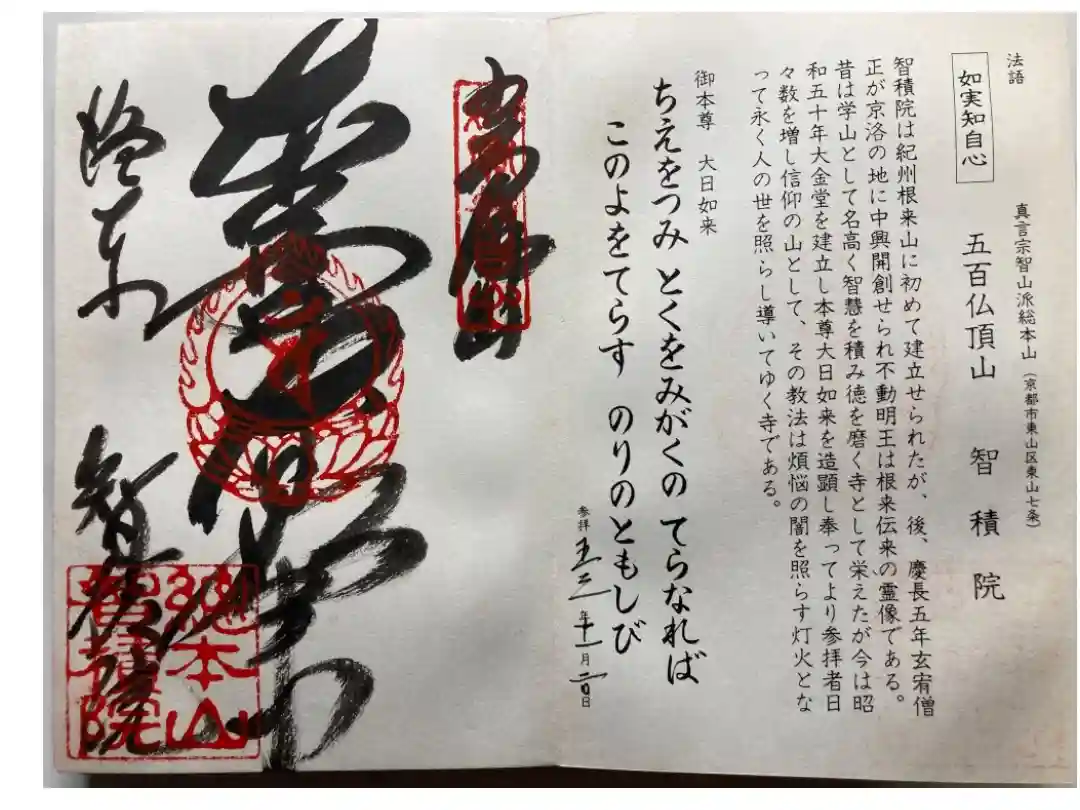 法語
真言宗智山派総本山（京都市東山区東山七条）
如実知自心
五百仏頂山　智積院
智積院は紀州根来山に初めて建立せられたが、後、慶長五年玄宥僧
正が京洛の地に中興開創せられ不動明王は根来伝来の霊像である。
昔は学山として名高く智慧を積み徳を磨く寺として栄えたが今は昭
和五十年大金堂を建立し本尊大日如来を造顕し奉ってより参拝者日
々数を増し信仰の山として、その教法は煩悩の闇を照らす灯火とな
って永く人の世を照らし導いてゆく寺である。
御本尊　大日如来
ちえをつみ とくをみがくの てらなれば
このよをてらす のりのともしび
参拝 五二年十一月 日
洛東 智積院
總本山
智積院